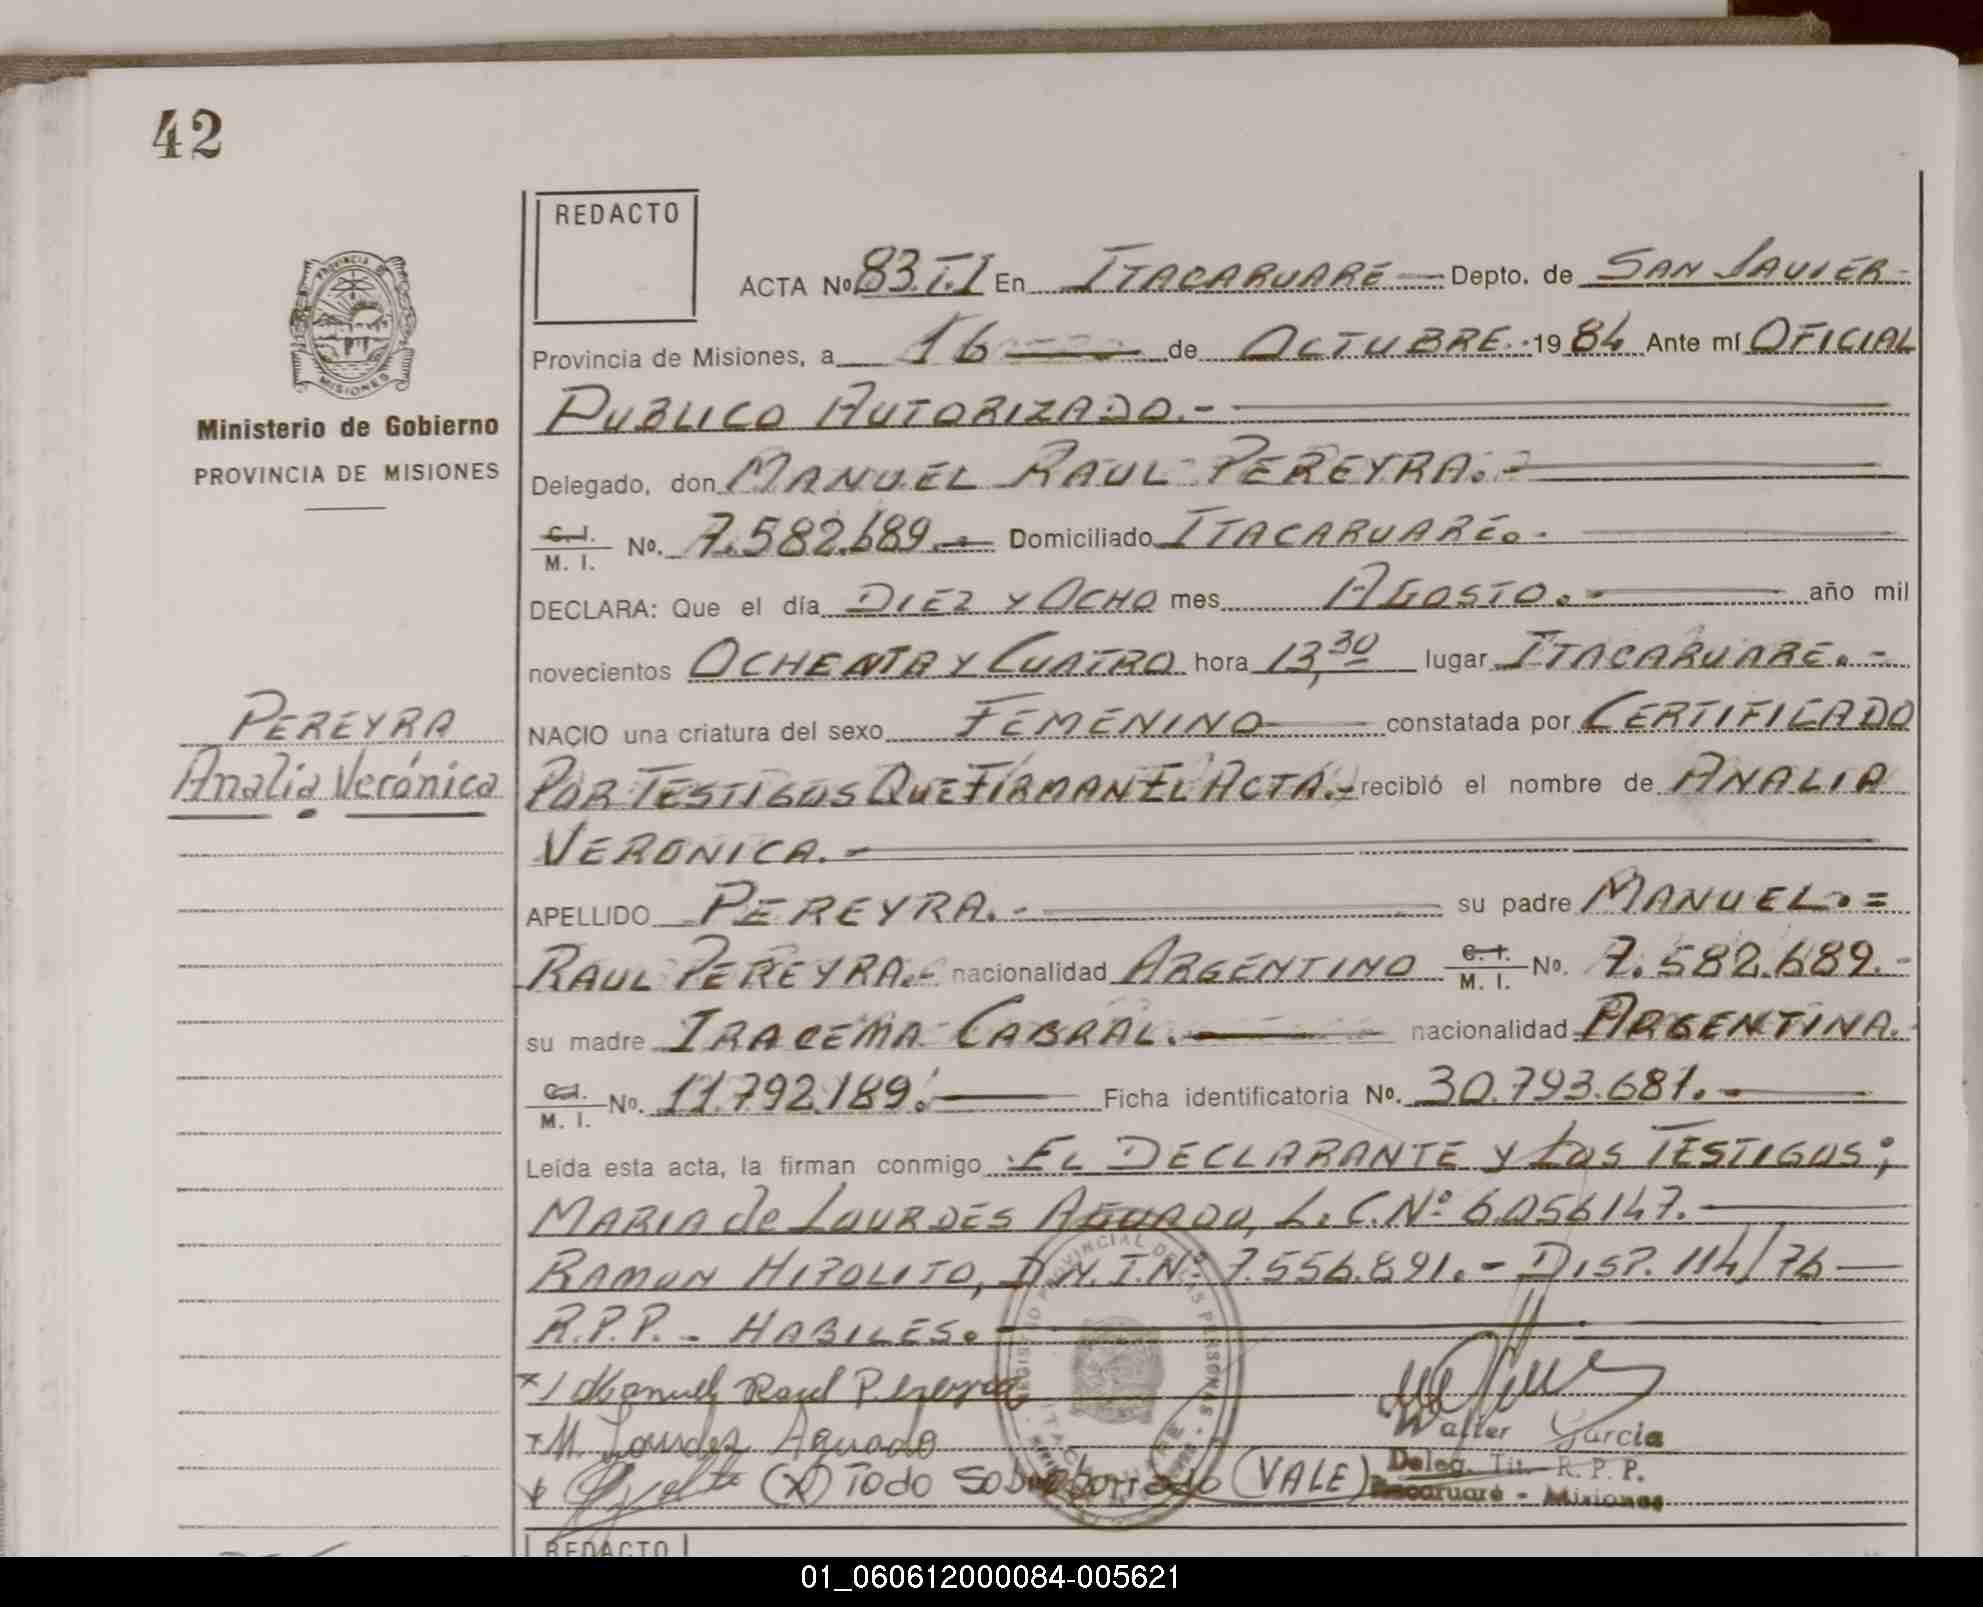 42
REDACTO
PROVINCIA DE
MISIONES
Ministerio de Gobierno
PROVINCIA DE MISIONES
ACTA Nº 83.T.I En ITACARUARÉ Depto. de SAN JAVIER
Provincia de Misiones, a 16 de OCTUBRE 1984 Ante mí OFICIAL
PUBLICO AUTORIZADO.-
Delegado, don MANUEL RAUL PEREYRA.-
C. I.
M. I. Nº. 7.582.689.- Domiciliado ITACARUARÉ.-
DECLARA: Que el día DIEZ Y OCHO mes AGOSTO.- año mil
novecientos OCHENTA Y CUATRO hora 13,30 lugar ITACARUARÉ.-
NACIO una criatura del sexo FEMENINO constatada por CERTIFICADO
POR TESTIGOS QUE FIRMAN EL ACTA.- recibió el nombre de ANALIA
VERONICA.-
PEREYRA
Analia Verónica
APELLIDO PEREYRA.- su padre MANUEL.=
RAUL PEREYRA.- nacionalidad ARGENTINO C. I. M. I. Nº. 7.582.689.-
su madre IRACEMA CABRAL.- nacionalidad ARGENTINA.
C. I. M. I. Nº. 11.792.189.- Ficha identificatoria Nº. 30.793.681.-
Leída esta acta, la firman conmigo EL DECLARANTE Y LOS TESTIGOS;
MARIA de LOURDES AGUADO, L.C.Nº 6.056147.
RAMON HIPOLITO, D.N.I.Nº 7.556.891.- DISP. 114/76
R.P.P. - HABILES.
Manuel Raul Pereyra
M. Lourdes Aguado
(X) Todo Sobreborrado (VALE)
Walter Garcia
Deleg. Tit. R. P. P.
Itacaruaré - Misiones
REDACTO
01_060612000084-005621